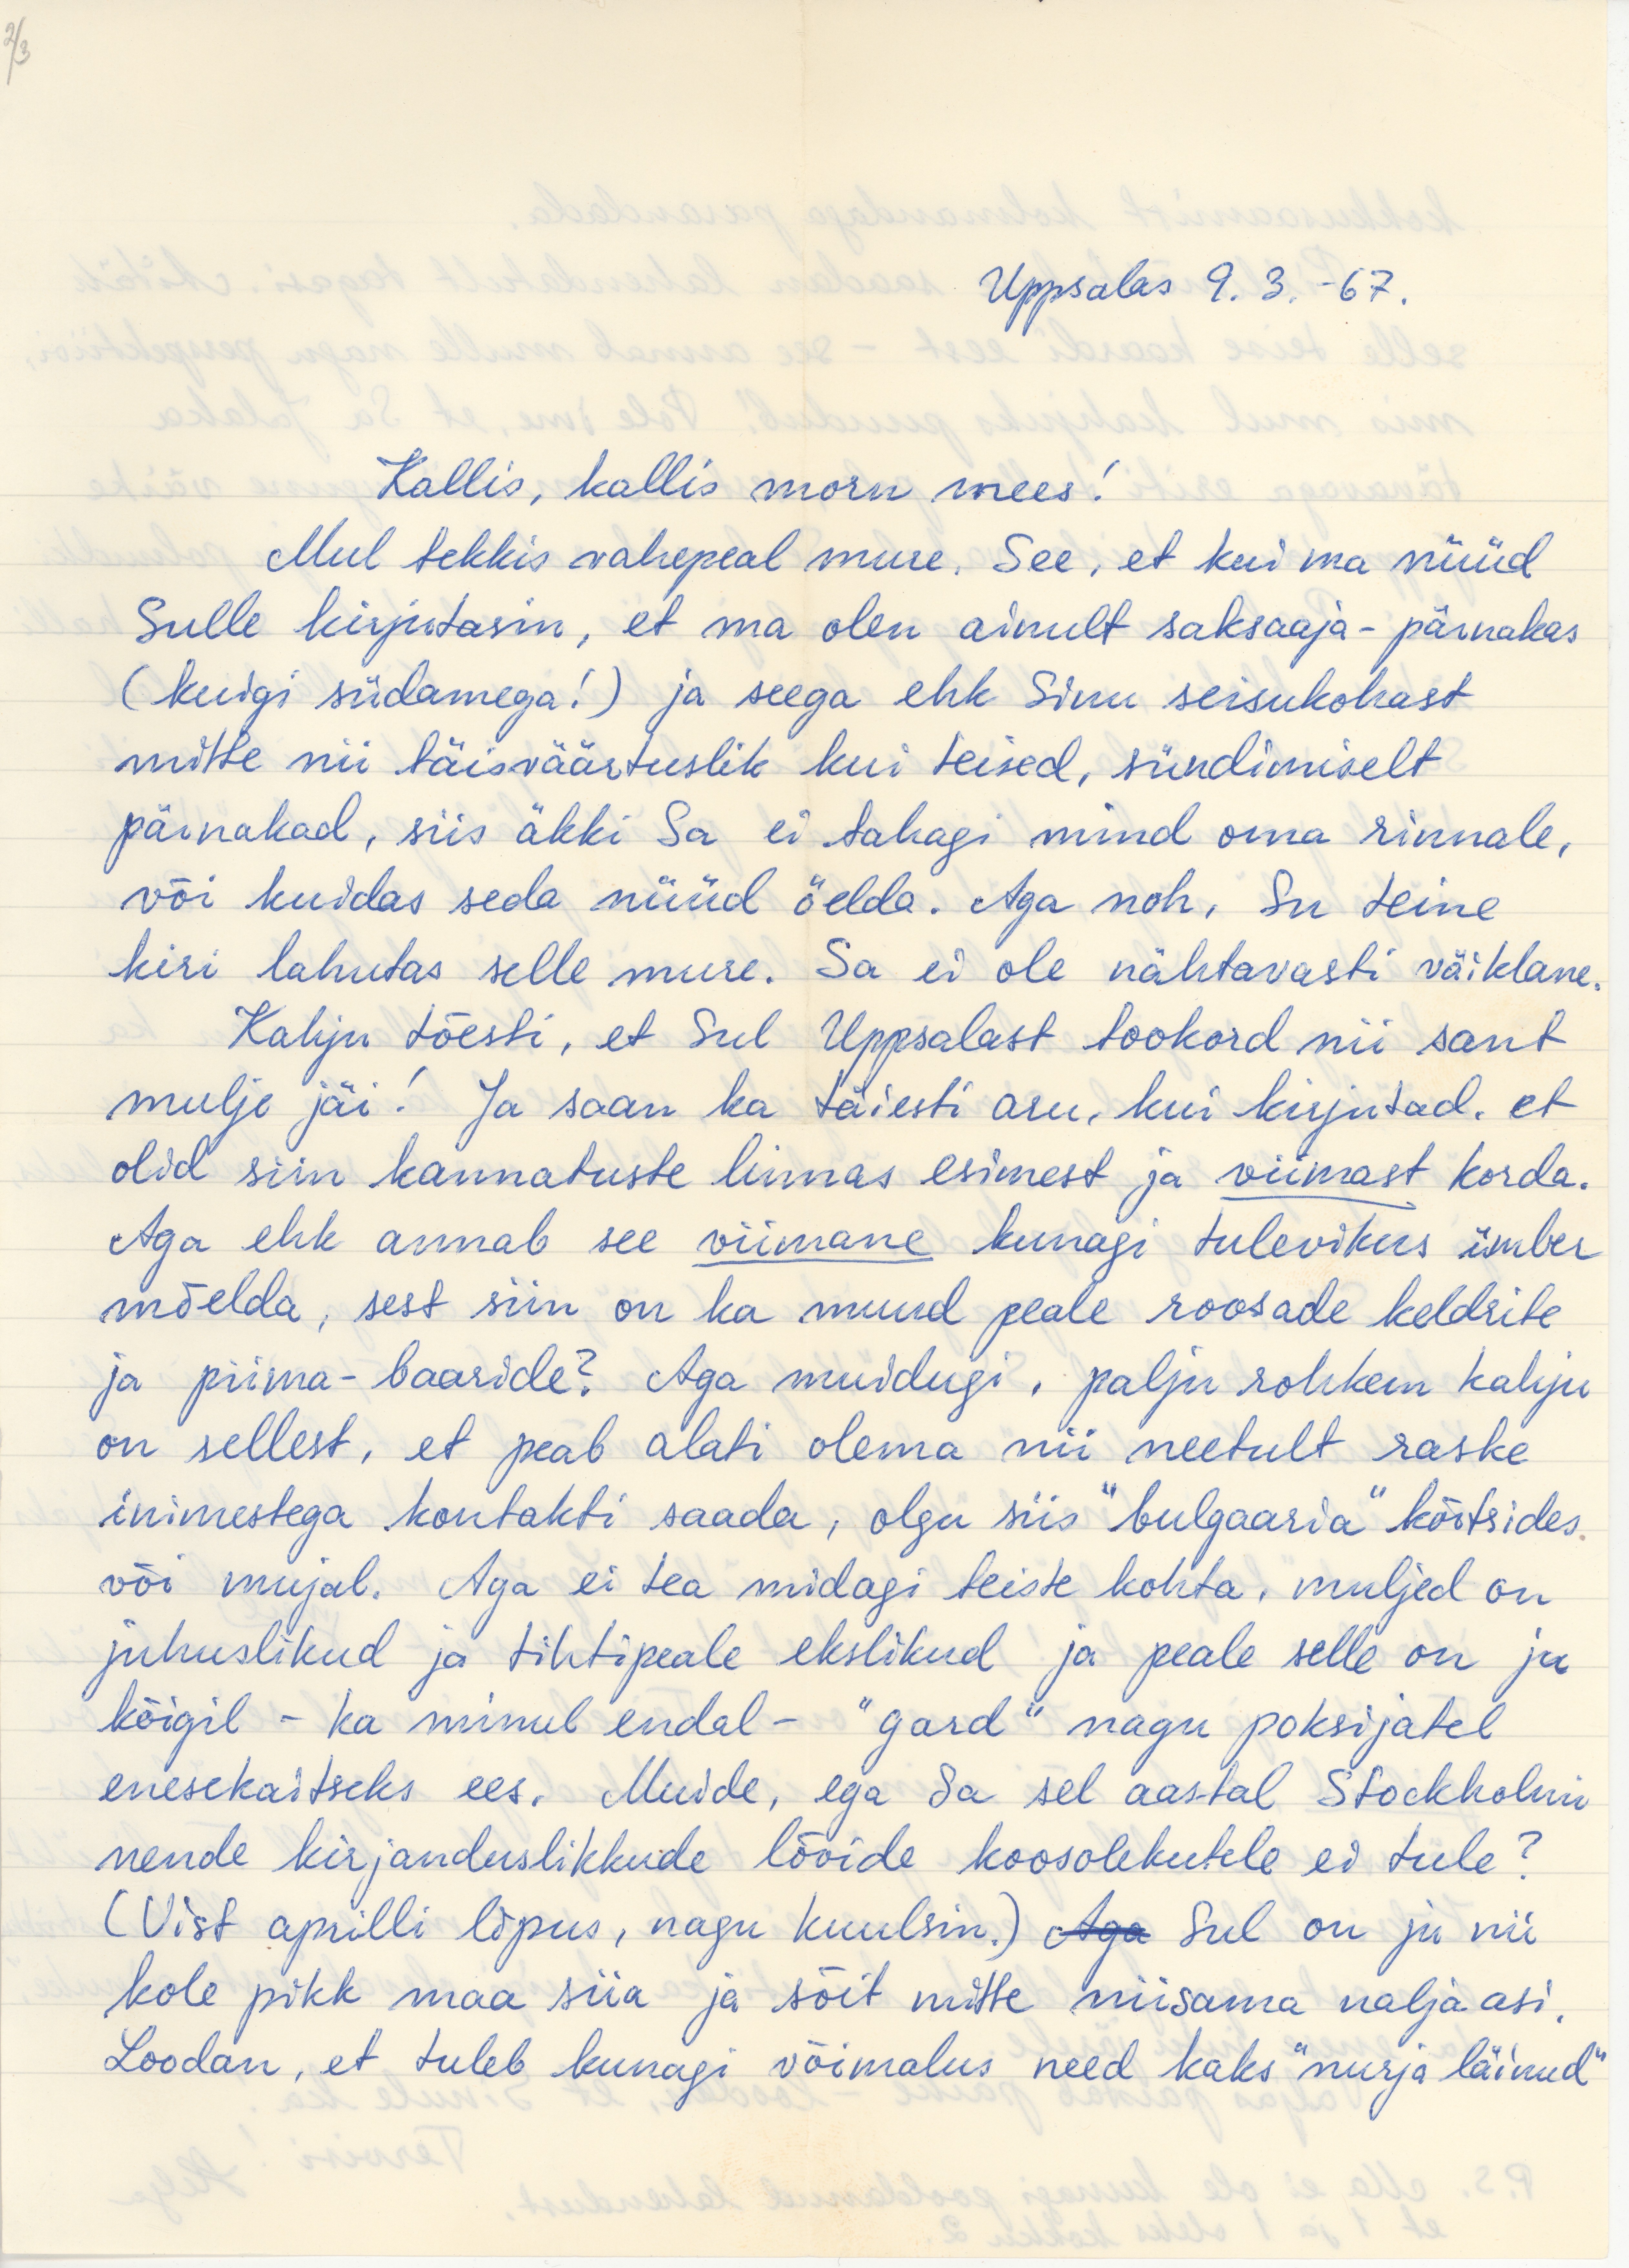 2/3
Uppsalas 9. 3. -67.
Kallis, kallis morn mees!
Mul tekkis vahepeal mure. See, et kui ma nüüd
Sulle kirjutasin, et ma olen ainult saksaaja - pärnakas
(kuigi südamega!) ja seega ehk Sinu seisukohast
mitte nii täisväärtuslik kui teised, sündimiselt
pärnakad, siis äkki Sa ei tahagi mind oma rinnale,
või kuidas seda nüüd öelda. Aga noh, Su teine
kiri lahutas selle mure. Sa ei ole nähtavasti väiklane.
Kahju tõesti, et Sul Uppsalast tookord nii sant
mulje jäi! Ja saan ka täiesti aru, kui kirjutad, et
olid siin kannatuste linnas esimest ja viimast korda.
Aga ehk annab see viimane kunagi tulevikus ümber
mõelda, sest siin on ka muud peale roosade keldrite
ja piima-baaride? Aga muidugi, palju rohkem kahju
on sellest, et peab alati olema nii neetult raske
inimestega kontakti saada, olgu siis "bulgaaria" kõrtsides
või mujal. Aga ei tea midagi teiste kohta, muljed on
juhuslikud ja tihtipeale ekslikud ja peale selle on ju
kõigil - ka minul endal - "gard" nagu poksijatel
enesekaitseks ees. Muide, ega Sa sel aastal Stockholmi
nende kirjanduslikkude lõvide koosolekutele ei tule?
(Vist aprilli lõpus, nagu kuulsin.) Aga Sul on ju nii
kole pikk maa siia ja sõit mitte niisama naljaasi.
Loodan, et tuleb kunagi võimalus need kaks "nurja läinud"